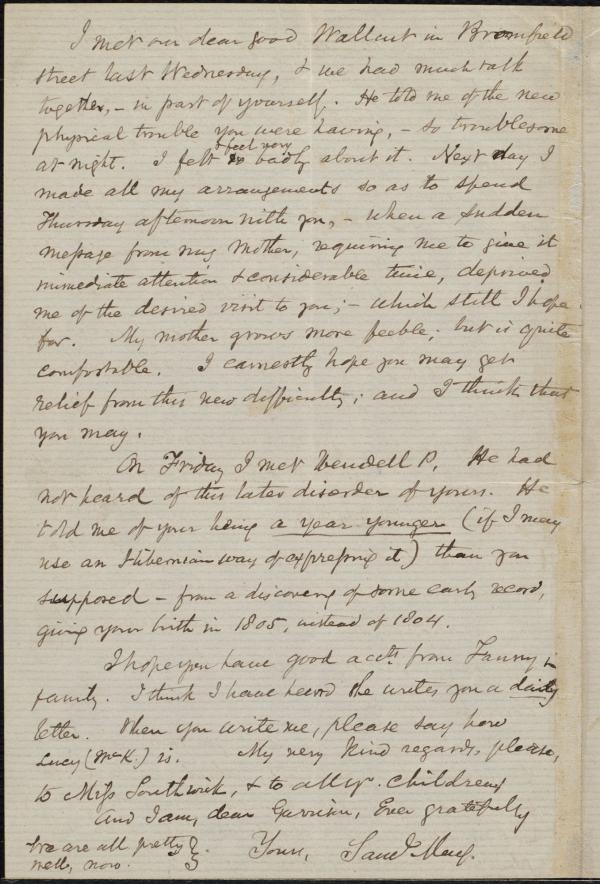 I met our dear good Wallcut in Bromfield
street last Wednesday, & we had much talk
together, – in part of yourself. He told me of the new
physical trouble you were having, – so troublesome
& feel very
at night. I felt badly about it. Next day I
made all my arrangements so as to spend
Thursday afternoon with you, – when a sudden
message from my mother, requiring me to give it
immediate attention & considerable time, deprived
me of the desired visit to you; – which still I hope
for. My mother grows more feeble, but is quite
comfortable. I earnestly hope you may get
relief from this new difficulty; and I think that
you may.
On Friday I met Wendell P. He had
not heard of this later disorder of yours. He
told me of your being a year younger (if I may
use an Hibernian way of expressing it) than you
supposed – from a discovery of some early record,
giving your birth in 1805, instead of 1804.
I hope you have good accts. from Fanny &
family. I think I have heard she writes you a daily
letter. When you write me, please say how
Lucy (McK.) is. My very kind regards, please,
to Miss Southwick, & to all yr. children;
And I am, dear Garrison, Ever gratefully
We are all pretty
well, now.
Yours, Saml. May.